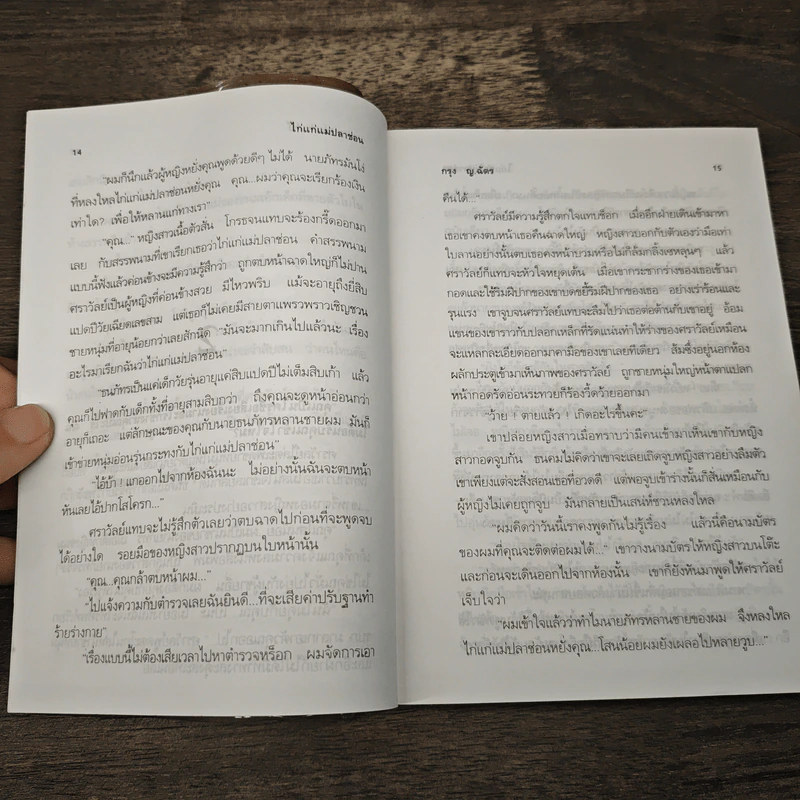 14
ไก่แก่แม่ปลาช่อน
"ผมก็นึกแล้วผู้หญิงหยั่งคุณพูดด้วยดีๆ ไม่ได้ นายภัทรมันโง่
ที่หลงใหลไก่แก่แม่ปลาช่อนหยั่งคุณ คุณ...ผมว่าคุณจะเรียกร้องเงิน
เท่าใด? เพื่อให้หลานแก่ทางเรา"
"คุณ..." หญิงสาวเนื้อตัวสั่น โกรธจนแทบจะร้องกรี๊ดออกมา
เลย กับสรรพนามที่เขาเรียกเธอว่าไก่แก่แม่ปลาช่อน คำสรรพนาม
แบบนี้ฟังแล้วค่อนข้างจะมีความรู้สึกว่า ถูกตบหน้าฉาดใหญ่ก็ไม่ปาน
ศราวัลย์เป็นผู้หญิงที่ค่อนข้างสวย มีไหวพริบ แม้จะอายุถึงยี่สิบ
แปดปีวัยเฉียดเลขสาม แต่เธอก็ไม่เคยมีสายตาแพรวพราวเชิญชวน
ชายหนุ่มที่อายุน้อยกว่าเลยสักนิด "มันจะมากเกินไปแล้วนะ เรื่อง
อะไรมาเรียกฉันว่าไก่แก่แม่ปลาช่อน"
"ธนภัทรเป็นแค่เด็กวัยรุ่นอายุแค่สิบแปดปีไม่เต็มสิบเก้า แล้ว
คุณก็ไปฟาดกับเด็กทั้งที่อายุสามสิบกว่า ถึงคุณจะดูหน้าอ่อนกว่า
อายุก็เถอะ แต่ลักษณะของคุณกับนายธนภัทรหลานชายผม มันก็
เข้าข่ายหนุ่มอ่อนรุ่นกระทงกับไก่แก่แม่ปลาช่อน"
"ไอ้บ้า ! แกออกไปจากห้องฉันนะ ไม่อย่างนั้นฉันจะตบหน้า
หันเลยไอ้ปากโสโครก..."
ศราวัลย์แทบจะไม่รู้สึกตัวเลยว่าตบฉาดไปก่อนที่จะพูดจบ
ได้อย่างใด รอยมือของหญิงสาวปรากฏบนใบหน้านั้น
"คุณ...คุณกล้าตบหน้าผม..."
"ไปแจ้งความกับตำรวจเลยฉันยินดี...ที่จะเสียค่าปรับฐานทำ
ร้ายร่างกาย"
"เรื่องแบบนี้ไม่ต้องเสียเวลาไปหาตำรวจหร็อก ผมจัดการเอา
กรุง ญ.ฉัตร
15
คืนได้..."
ศราวัลย์มีความรู้สึกตกใจแทบช็อก เมื่ออีกฝ่ายเดินเข้ามาหา
เธอเขาคงตบหน้าเธอคืนฉาดใหญ่ หญิงสาวบอกกับตัวเองว่ามือเท่า
ใบลานอย่างนั้นตบเธอคงหน้าบวมหรือไม่ก็ล้มกลิ้งเซหลุนๆ แล้ว
ศราวัลย์ก็แทบจะหัวใจหยุดเต้น เมื่อเขากระชากร่างของเธอเข้ามา
กอดและใช้ริมฝีปากของเขาบดขยี้ริมฝีปากของเธอ อย่างเร่าร้อนและ
รุนแรง เขาจูบจนศราวัลย์แทบจะลืมไปว่าเธอต่อต้านกับเขาอยู่ อ้อม
แขนของเขาราวกับปลอกเหล็กที่รัดแน่นทำให้ร่างของศราวัลย์เหมือน
จะแหลกละเอียดออกมาคามือของเขาเลยทีเดียว ส้มซึ่งอยู่นอกห้อง
ผลักประตูเข้ามาเห็นภาพของศราวัลย์ ถูกชายหนุ่มใหญ่หน้าตาแปลก
หน้ากอดรัดอ่อนระทวยก็ร้องวี้ดว้ายออกมา
"ว้าย ! ตายแล้ว ! เกิดอะไรขึ้นคะ"
เขาปล่อยหญิงสาวเมื่อทราบว่ามีคนเข้ามาเห็นเขากับหญิง
สาวกอดจูบกัน ธนคมไม่คิดว่าเขาจะเลยเถิดจูบหญิงสาวอย่างลืมตัว
เขาเพียงแต่จะสั่งสอนเธอที่อวดดี แต่พอจูบเข้าร่างนั้นก็สั่นเหมือนกับ
ผู้หญิงไม่เคยถูกจูบ มันกลายเป็นเสน่ห์ชวนหลงใหล
"ผมคิดว่าวันนี้เราคงพูดกันไม่รู้เรื่อง แล้วนี่คือนามบัตร
ของผมที่คุณจะติดต่อผมได้..." เขาวางนามบัตรให้หญิงสาวบนโต๊ะ
และก่อนจะเดินออกไปจากห้องนั้น เขาก็ยังหันมาพูดให้ศราวัลย์
เจ็บใจว่า
"ผมเข้าใจแล้วว่าทำไมนายภัทรหลานชายของผม จึงหลงใหล
ไก่แก่แม่ปลาช่อนหยั่งคุณ...โสนน้อยผมยังเผลอไปหลายวูบ..."